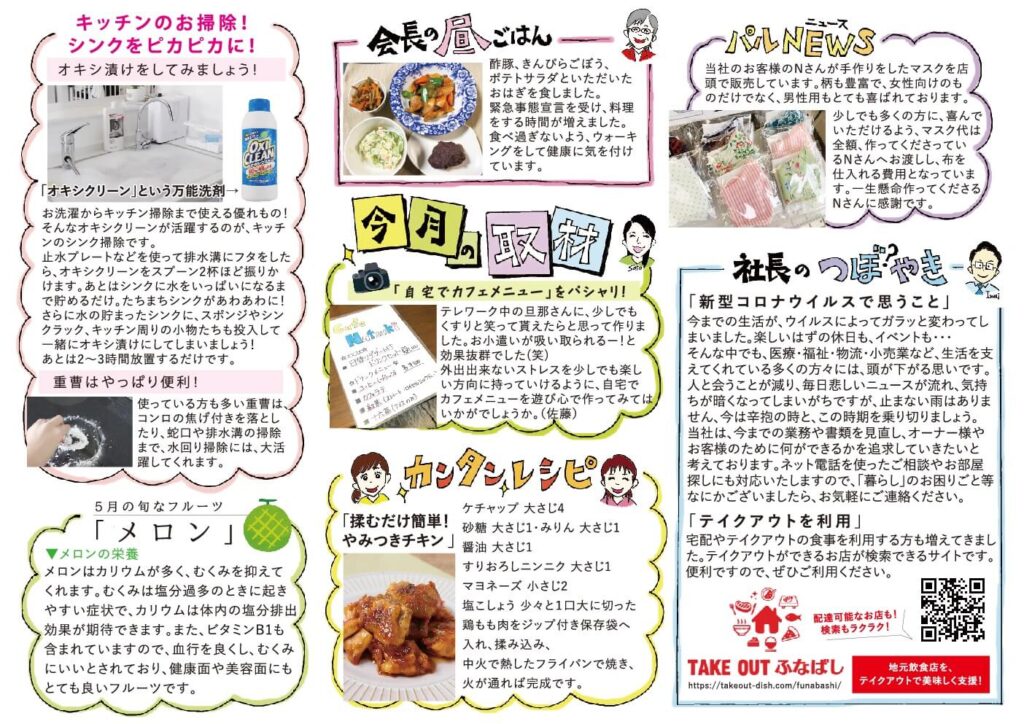 キッチンのお掃除!
シンクをピカピカに!
オキシ漬けをしてみましょう!
OXI
CLEAN
「オキシクリーン」という万能洗剤→
お洗濯からキッチン掃除まで使える優れもの!
そんなオキシクリーンが活躍するのが、キッチ
ンのシンク掃除です。
止水プレートなどを使って排水溝にフタをした
ら、オキシクリーンをスプーン2杯ほど振りか
けます。あとはシンクに水をいっぱいになるま
で貯めるだけ。たちまちシンクがあわあわに!
さらに水の貯まったシンクに、スポンジやシン
クラック、キッチン周りの小物たちも投入して
一緒にオキシ漬けにしてしまいましょう!
あとは2〜3時間放置するだけです。
重曹はやっぱり便利!
使っている方も多い重曹は、
コンロの焦げ付きを落とし
たり、蛇口や排水溝の掃除
まで、水回り掃除には、大活
躍してくれます。
5月の旬なフルーツ
「メロン」
▼メロンの栄養
メロンはカリウムが多く、むくみを抑えて
くれます。むくみは塩分過多のときに起き
やすい症状で、カリウムは体内の塩分排出
効果が期待できます。また、ビタミンB1も
含まれていますので、血行を良くし、むくみ
にいいとされており、健康面や美容面にも
とても良いフルーツです。
会長の昼ごはん
酢豚、きんぴらごぼう、
ポテトサラダといただいた
おはぎを食しました。
緊急事態宣言を受け、料理
をする時間が増えました。
食べ過ぎないよう、ウォーキ
ングをして健康に気を付け
ています。
今月の取材
Sato
「自宅でカフェメニュー」をパシャリ!
テレワーク中の旦那さんに、少しでも
くすりと笑って貰えたらと思って作りま
した。お小遣いが吸い取られるー!と
効果抜群でした(笑)
外出出来ないストレスを少しでも楽し
い方向に持っていけるように、自宅で
カフェメニューを遊び心で作ってみては
いかがでしょうか。(佐藤)
カンタンレシピ
「揉むだけ簡単!
やみつきチキン」
ケチャップ 大さじ4
砂糖 大さじ1・みりん 大さじ1
醤油 大さじ1
すりおろしニンニク 大さじ1
マヨネーズ 小さじ2
塩こしょう 少々と1口大に切った
鶏もも肉をジップ付き保存袋へ
入れ、揉み込み、
中火で熱したフライパンで焼き、
火が通れば完成です。
ニュース
パルNEWS
当社のお客様のNさんが手作りをしたマスクを店
頭で販売しています。柄も豊富で、女性向けのも
のだけでなく、男性用もとても喜ばれております。
少しでも多くの方に、喜んで
いただけるよう、マスク代は
全額、作ってくださってい
るNさんへお渡しし、布を
仕入れる費用となっていま
す。一生懸命作ってくださる
Nさんに感謝です。
社長のつぼやき
?
Iwai
「新型コロナウイルスで思うこと」
今までの生活が、ウイルスによってガラッと変わってし
まいました。楽しいはずの休日も、イベントも・・・
そんな中でも、医療・福祉・物流・小売業など、生活を支
えてくれている多くの方々には、頭が下がる思いです。
人と会うことが減り、毎日悲しいニュースが流れ、気持
ちが暗くなってしまいがちですが、止まない雨はありま
せん、今は辛抱の時と、この時期を乗り切りましょう。
当社は、今までの業務や書類を見直し、オーナー様や
お客様のために何ができるかを追求していきたいと
考えております。ネット電話を使ったご相談やお部屋
探しにも対応いたしますので、「暮らし」のお困りごと等
なにかございましたら、お気軽にご連絡ください。
「テイクアウトを利用」
宅配やテイクアウトの食事を利用する方も増えてきまし
た。テイクアウトができるお店が検索できるサイトです。
便利ですので、ぜひご利用ください。
配達可能なお店も!
検索もラクラク!
TAKE OUT ふなばし
https://takeout-dish.com/funabashi/
地元飲食店を、
テイクアウトで美味しく支援!